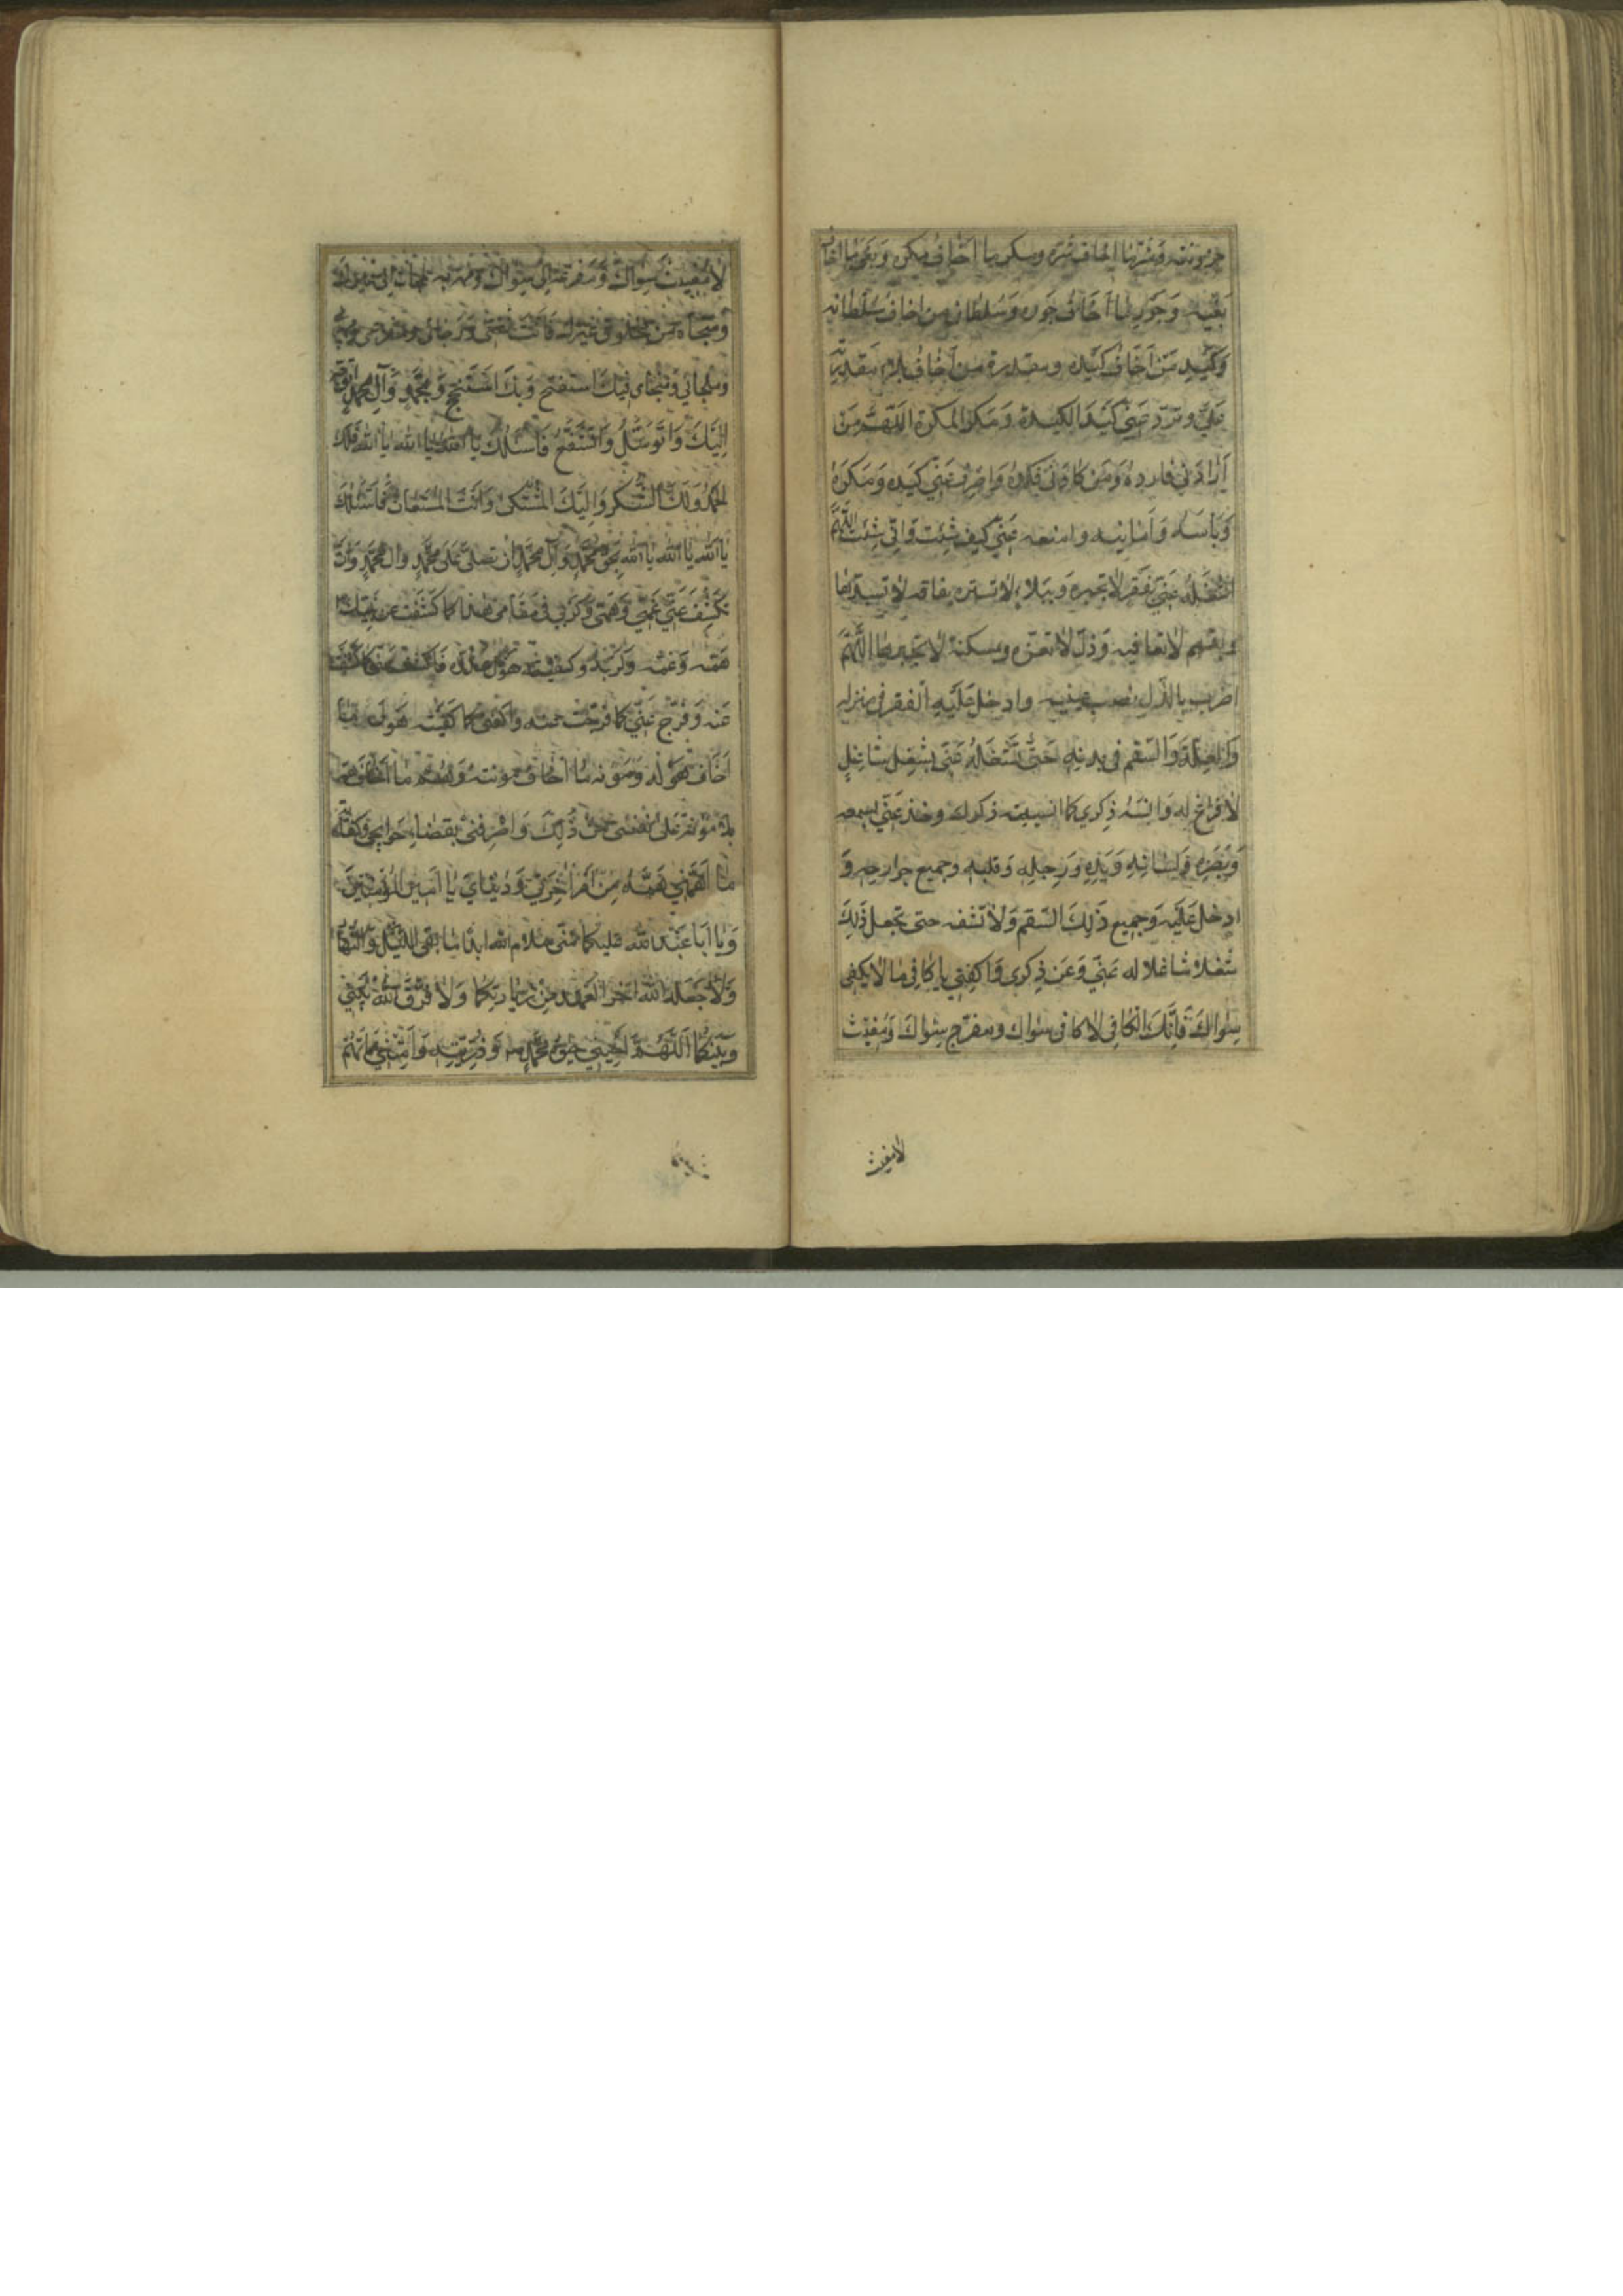 حزونته وشر ما اخاف شره ومكر ما اخاف مكره وبغي ما اخاف
بغيه وجور ما اخاف جوره وسلطان من اخاف سلطانه
وكيد من اخاف كيده ومقدرة من اخاف بلاء مقدرته
علي وترد عني كيد الكيدة ومكر المكرة اللهم من
ارادني فارده ومن كادني فكده واصرف عني كيده ومكره
وباسه وامانيه وامنعه عني كيف شئت واني شئت اللهم
اشغله عني بفقر لا تجبره وببلاء لا تستره بفاقة لا تسدها
وبسقم لا تعافيه وذل لا تعزه ومسكنة لا تجبرها اللهم
اضرب بالذل نصب عينيه وادخل عليه الفقر في منزله
والعلة والسقم في بدنه حتى تشغله عني بشغل شاغل
لا فراغ له وانسه ذكري كما انسيته ذكرك وخذ عني بسمعه
وبصره ولسانه ويده ورجله وقلبه وجميع جوارحه و
ادخل عليه وجميع ذلك السقم ولا تشفه حتى تجعل ذلك
شغلا شاغلا له عني وعن ذكري واكفني يا كافي ما لا يكفي
سواك فانك الكافي لا كافي سواك ومفرج سواك ومغيث
لا مغيث
لا مغيث سواك ومفزعه الى سواك ومهربه
ومنجاه من مخلوق غيرك فانت ثقتي ورجائي ومفزعي ومهربي
وملجائي ومنجاي فبك استفتح وبك استنجح وبمحمد وآل محمد اتوجه
اليك واتوسل فاسئلك يا الله يا الله يا الله فلك
الحمد ولك الشكر واليك المشتكى وانت المستعان فاسئلك
يا الله يا الله يا الله بحق محمد وآل محمد ان تصلي على محمد وال محمد وان
تكشف عني غمي وهمي وكربي في مقامي هذا كما كشفت عن نبيك
همه وغمه وكربه وكفيته هول عدوه فاكشف عني كما كشفت
عنه وفرج عني كما فرجت عنه واكفني كما كفيته هول ما
اخاف هوله ومؤنة ما اخاف مؤنته وهم ما اخاف همه
بلا مؤنة على نفسي من ذلك واصرفني بقضاء حوايجي وكفاية
ما اهمني همه من امر اخرتي ودنياي يا امير المؤمنين
ويا ابا عبد الله عليكما مني سلام الله ابدا ما بقي الليل والنهار
ولا جعله الله اخر العهد من زيارتكما ولا فرق الله بيني
وبينكما اللهم احيني محمد وذريته وامتني مماتهم